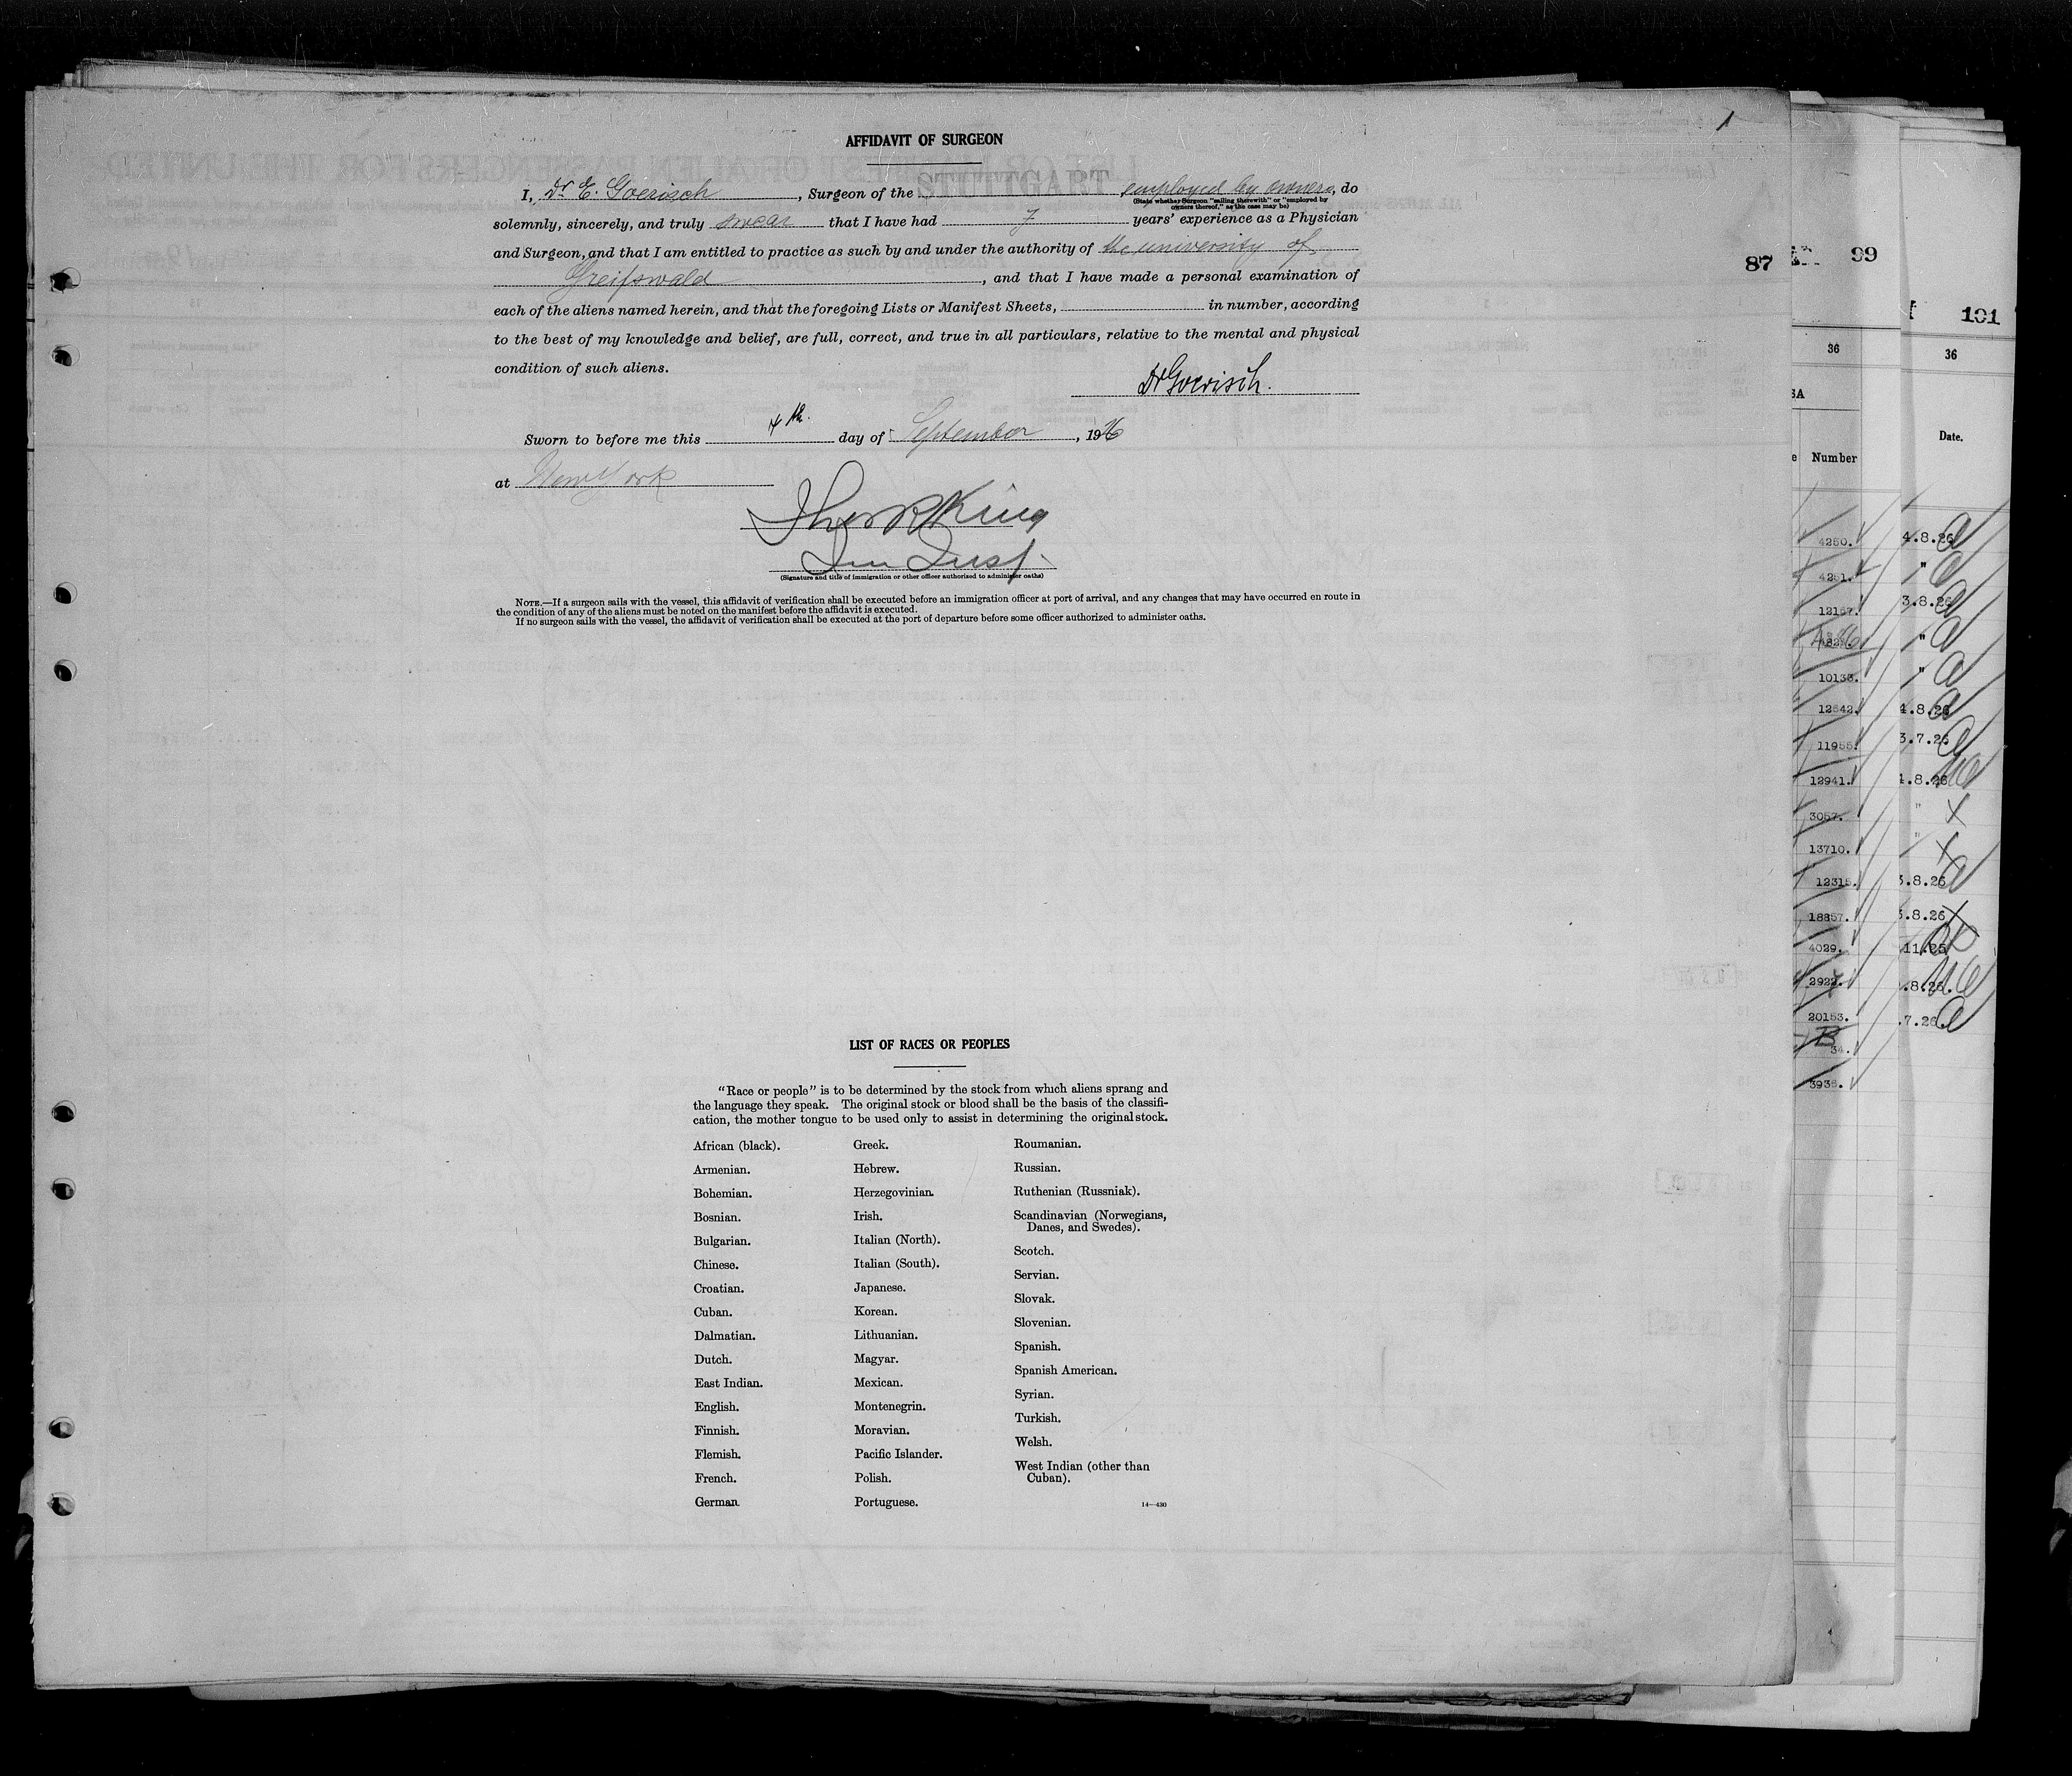 1
AFFIDAVIT OF SURGEON
I, Dr E. Goerisch, Surgeon of the STUTTGART employed by owners, do
(State whether Surgeon "sailing therewith" or "employed by
owners thereof," as the case may be)
solemnly, sincerely, and truly swear that I have had 7 years' experience as a Physician
and Surgeon, and that I am entitled to practice as such by and under the authority of the university of
Greifswald, and that I have made a personal examination of
each of the aliens named herein, and that the foregoing Lists or Manifest Sheets, in number, according
to the best of my knowledge and belief, are full, correct, and true in all particulars, relative to the mental and physical
condition of such aliens.
Dr Goerisch.
Sworn to before me this 4th. day of September, 1926
at New York
King
Imm Insp.
(Signature and title of immigration or other officer authorized to administer oaths)
NOTE.—If a surgeon sails with the vessel, this affidavit of verification shall be executed before an immigration officer at port of arrival, and any changes that may have occurred en route in
the condition of any of the aliens must be noted on the manifest before the affidavit is executed.
If no surgeon sails with the vessel, the affidavit of verification shall be executed at the port of departure before some officer authorized to administer oaths.
LIST OF RACES OR PEOPLES
"Race or people" is to be determined by the stock from which aliens sprang and
the language they speak. The original stock or blood shall be the basis of the classifi-
cation, the mother tongue to be used only to assist in determining the original stock.
African (black).
Armenian.
Bohemian.
Bosnian.
Bulgarian.
Chinese.
Croatian.
Cuban.
Dalmatian.
Dutch.
East Indian.
English.
Finnish.
Flemish.
French.
German.
Greek.
Hebrew.
Herzegovinian.
Irish.
Italian (North).
Italian (South).
Japanese.
Korean.
Lithuanian.
Magyar.
Mexican.
Montenegrin.
Moravian.
Pacific Islander.
Polish.
Portuguese.
Roumanian.
Russian.
Ruthenian (Russniak).
Scandinavian (Norwegians,
Danes, and Swedes).
Scotch.
Servian.
Slovak.
Slovenian.
Spanish.
Spanish American.
Syrian.
Turkish.
Welsh.
West Indian (other than
Cuban).
14—430
87
99
36
Number
4250.
4251.
12167.
10133.
12542.
11955.
12941.
3057.
13710.
12315.
18857.
4029.
2922.
20153.
B
34.
3936.
101
36
Date.
4.8.26
"
3.8.26
"
"
4.8.26
3.7.26
4.8.26
"
"
3.8.26
3.8.26
11.25
.8.26.
.7.26